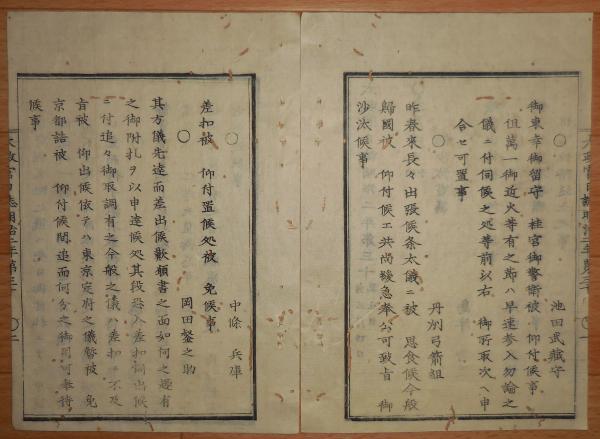 池田武蔵守
御東幸御留守 桂宮御警衛被 仰付候事
但萬一御近火等有之節ハ早速参入勿論之
儀ニ付伺候之処等前以右 御所取次ヘ申
合セ可置事
丹列弓箭組
昨春来長々出張候条太儀ニ被 思食候今般
歸國被 仰付候エ共尚緩急奉公可致旨 御
沙汰候事
中條 兵庫
差扣被 仰付置候処被 免候事
岡田鋻之助
其方儀先達而差出候歎願書之面如何之趣有
之御附札ヲ以申達候処其段恐入差扣伺出候
ニ付追々御取調有之今般之儀ハ差扣ニ不及
旨被 仰出候依テハ東京定府之儀勝被 免
京都詰被 仰付候間追而何分之御用可奉待
候事
太政官日誌明治二年第三